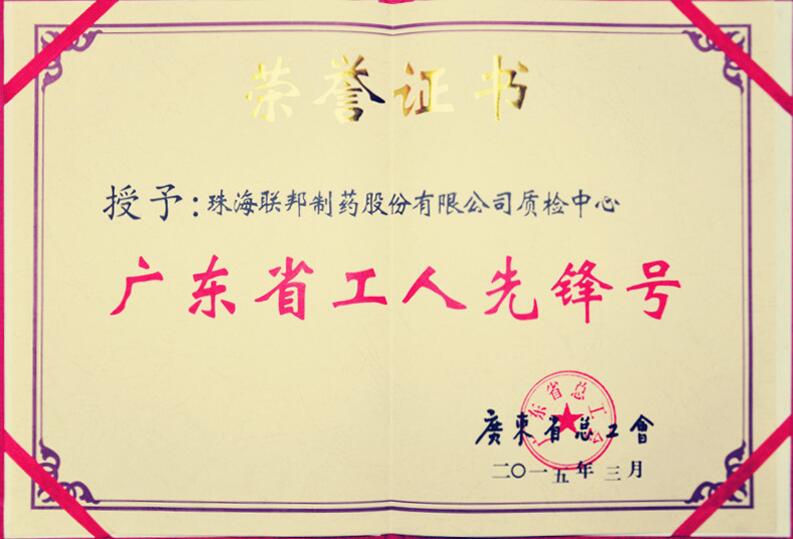 荣誉证书
授予:珠海联邦制药股份有限公司质检中心
广东省工人先锋号
广东省总工会
廣東省总工會
二〇一五年三月